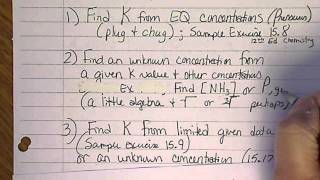 1) Find K from EQ concentrations (Pressures)
(plug + chug); Sample Exercise 15.8
Ed Chemistry
2) Find an unknown concentration from
a given K value + other concentrations
Ex Find [NH3] or P
(a little algebra + T or perhaps)
3) Find K from limited given data
(Sample exercise 15.9)
or an unknown concentration (15.17